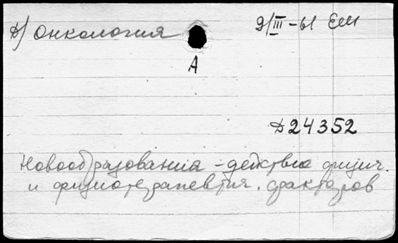 Д) Онкология 9/III-61
А
Д24352
Новообразования - действие физич.
и физиотерапевтич. факторов